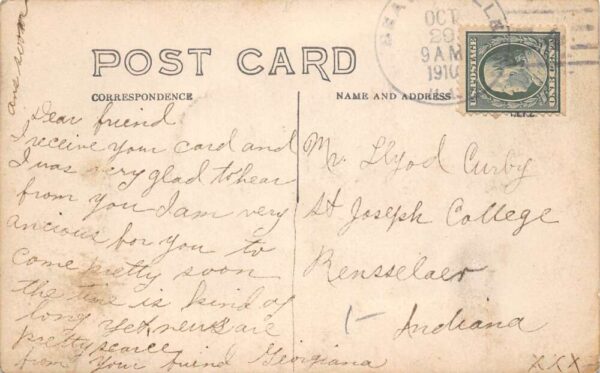 ans soon
OCT
29
9 AM
1910
U.S. POSTAGE
ONE CENT
POST CARD
CORRESPONDENCE
NAME AND ADDRESS
Dear friend
I receive your card and
I was very glad to hear
from you I am very
ancious for you to
come pretty soon
the time is kind of
long yet news are
pretty scarce
from Your friend Georgiana
Mr. Llyod Curby
St Joseph College
Rensselaer
Indiana
XXX